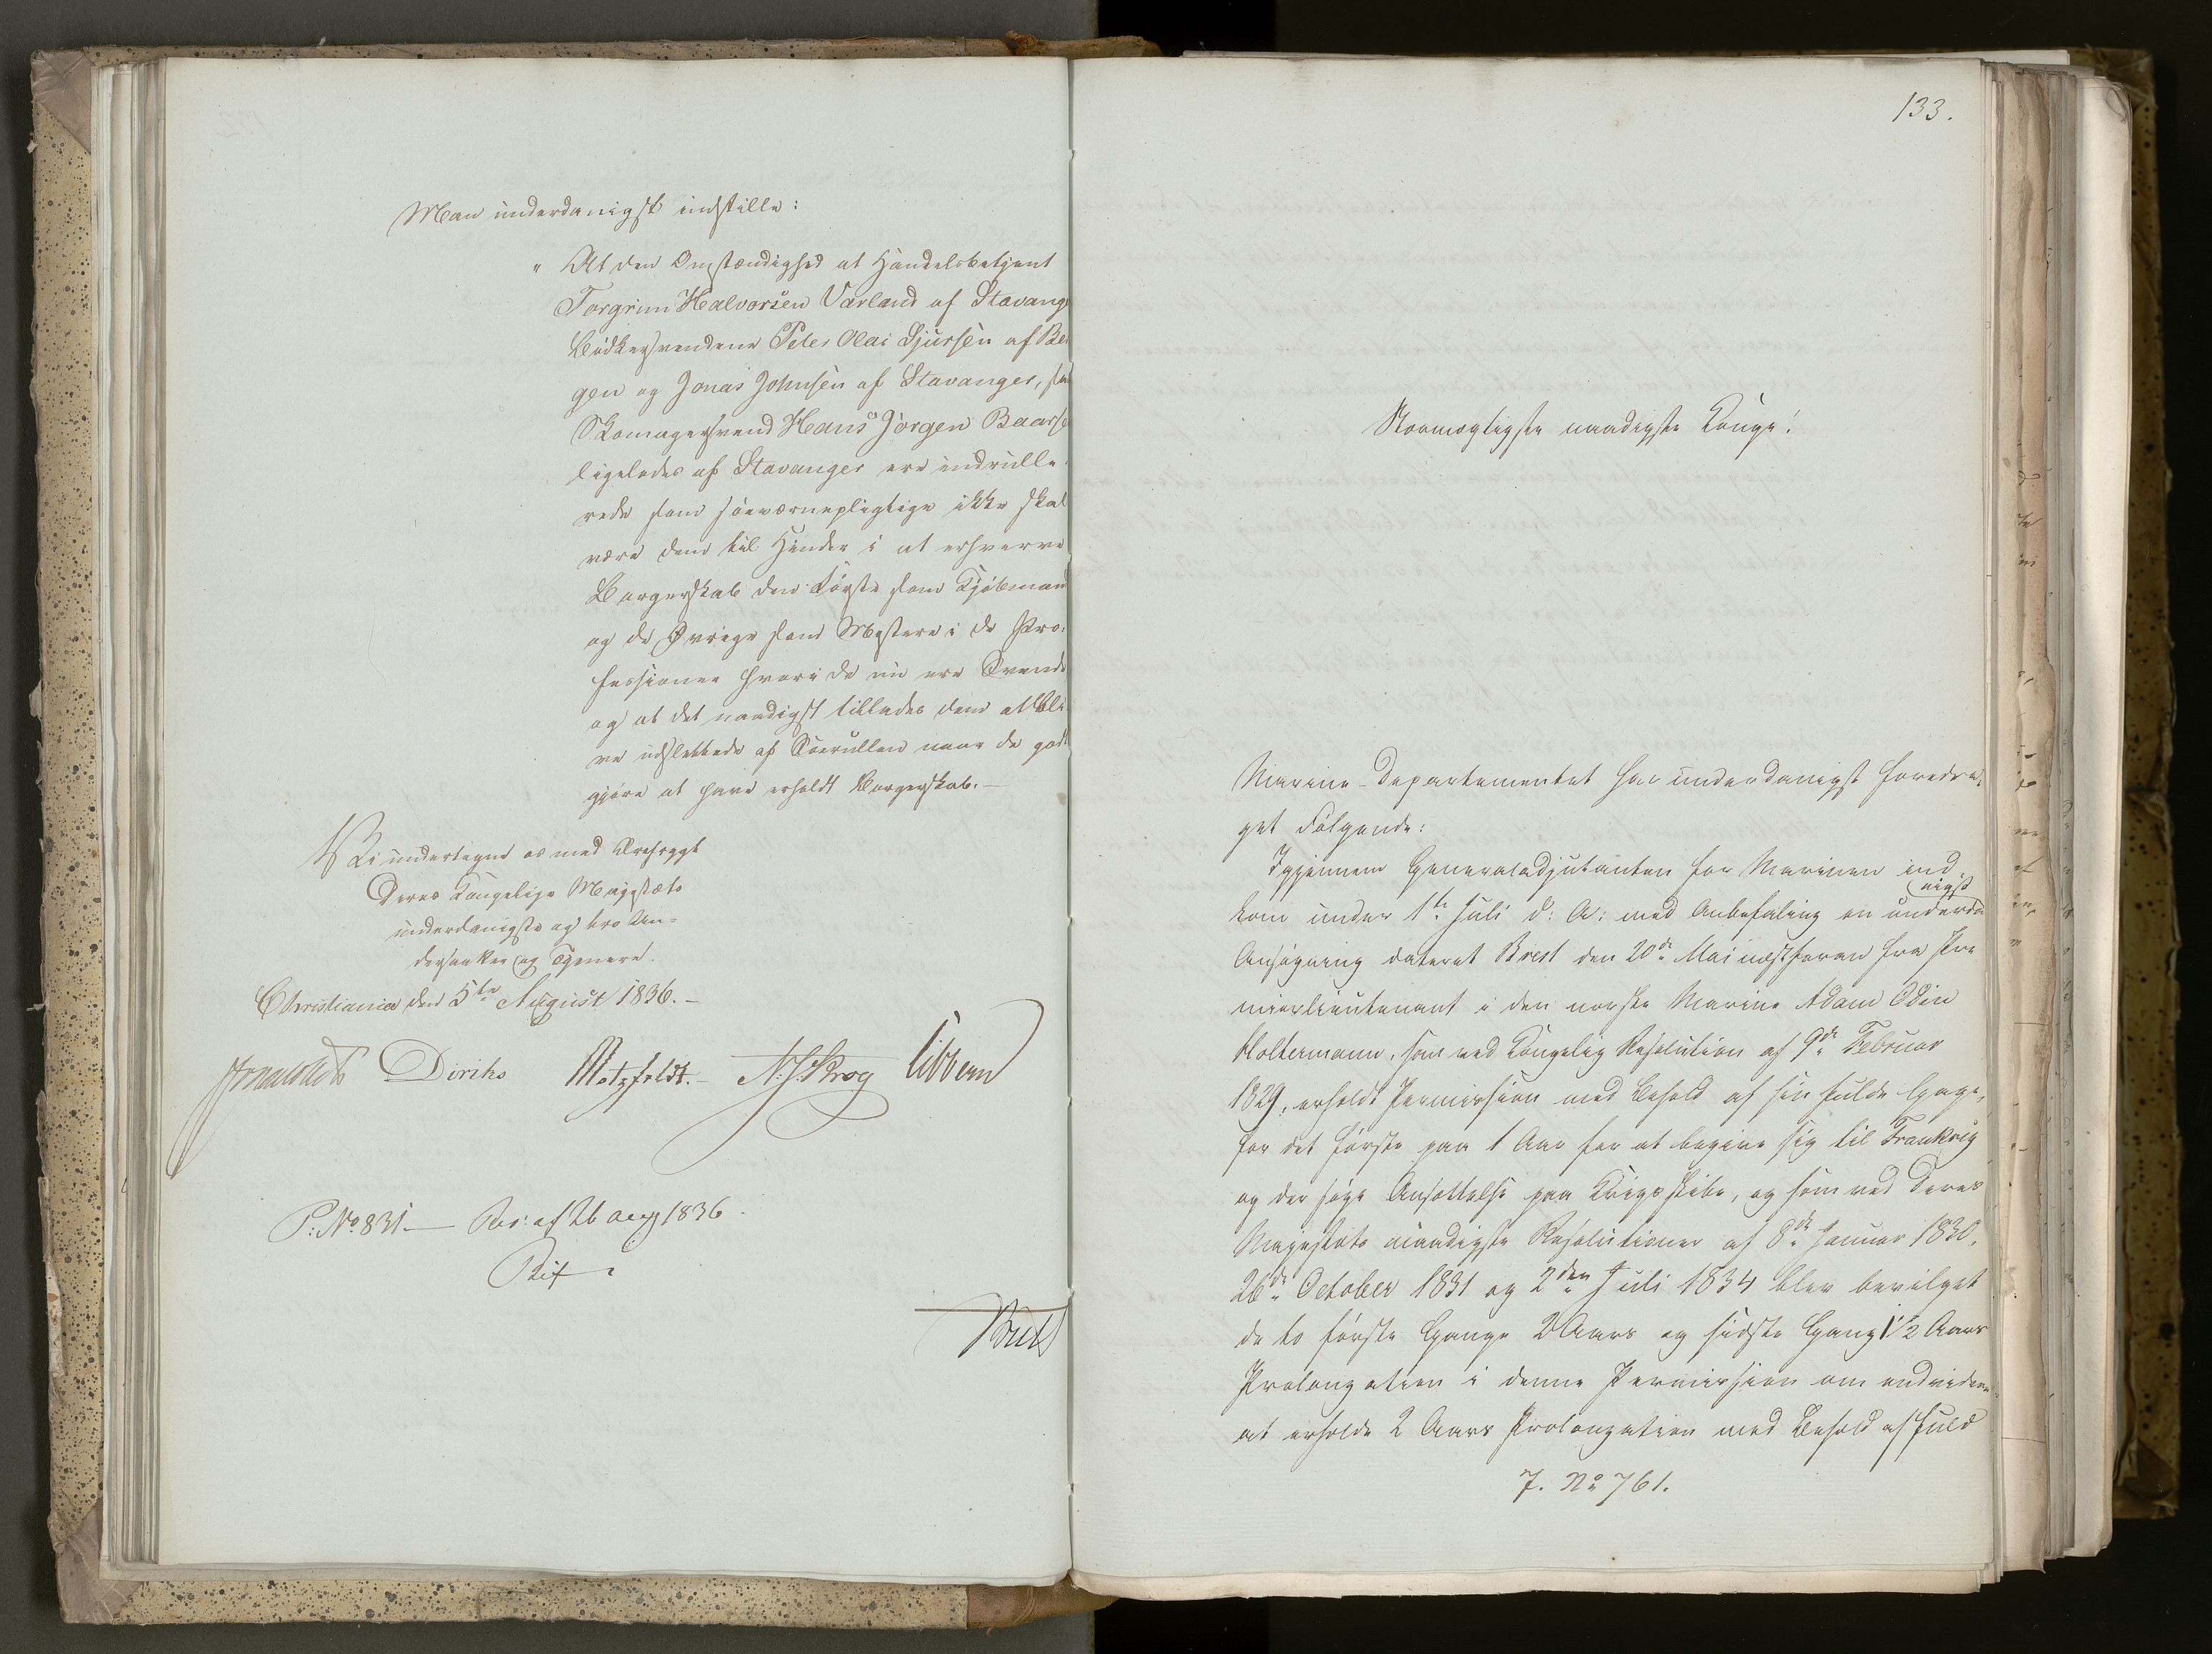 Man underdanigst indstille:
" At den Omstændighed at Handelsbetjent
Torgrim Halvorsen Varland af Stavang
Bødkersvendene Peter Olai Sjursen af Ber
gen og Jonas Johnsen af Stavanger, sa
Skomagersvend Hans Jørgen Baarse
ligeledes af Stavanger ere indrulle-
rede som søeværnepligtige ikke skal
være dem til Hinder i at erhverve
Borgerskab den Første som Kjøbmand
og de Øvrige som Mestere i de Pro-
fessioner hvori de nu ere Svende
og at det naadigst tillades dem at bli
ve udslettede af Søerullen naar de godt
gjøre at have erholdt Borgerskab.—
Vi undertegne os med Ærefrygt
Deres Kongelige Majestæts
underdanigste og tro Un-
dersaatter og Tjenere.
Christiania den 5te August 1836.—
Diriks Motzfeldt.— N. J. Krog Vibbern
P: No 831.— Res: af 26 aug 1836
133.
Stormægtigste naadigste Konge!
Marine-Departementet har underdanigst foredra-
get Følgende:
Igjennem Generaladjutanten for Marinen ind
nigst
kom under 1ste Juli d: A: med Anbefaling en underda
Ansøgning dateret Brest den 20de Mai næstforan fra Pre
mierlieutenant i den norske Marine Adam Odin
Holtermann, som ved Kongelig Resolution af 9de Februar
1829, erholdt Permission med Behold af sin fulde Gage,
for det første paa 1 Aar for at begive sig til Frankrig
og der søge Ansættelse paa Krigsskibe, og som ved Deres
Majestæts naadigste Resolutioner af 8de Januar 1830,
26de October 1831 og 2den Juli 1834 blev bevilget
de to første Gange 2 Aars og sidste Gang 1 1/2 Aars
Prolongation i denne Permission om endvidere
at erholde 2 Aars Prolongation med Behold af fuld
J. No 761.